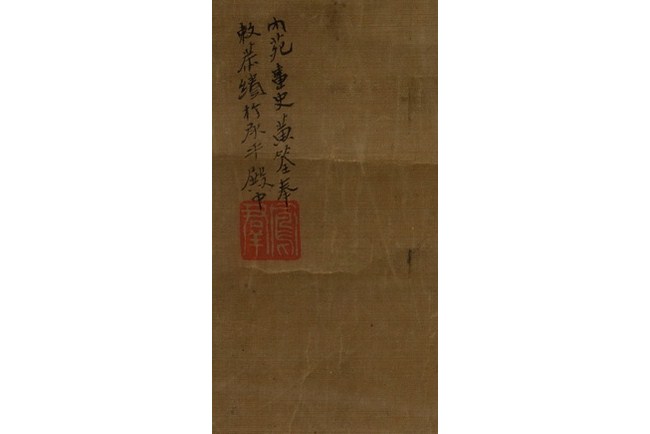 内苑畫史黃筌奉
敕恭繪於承平殿中